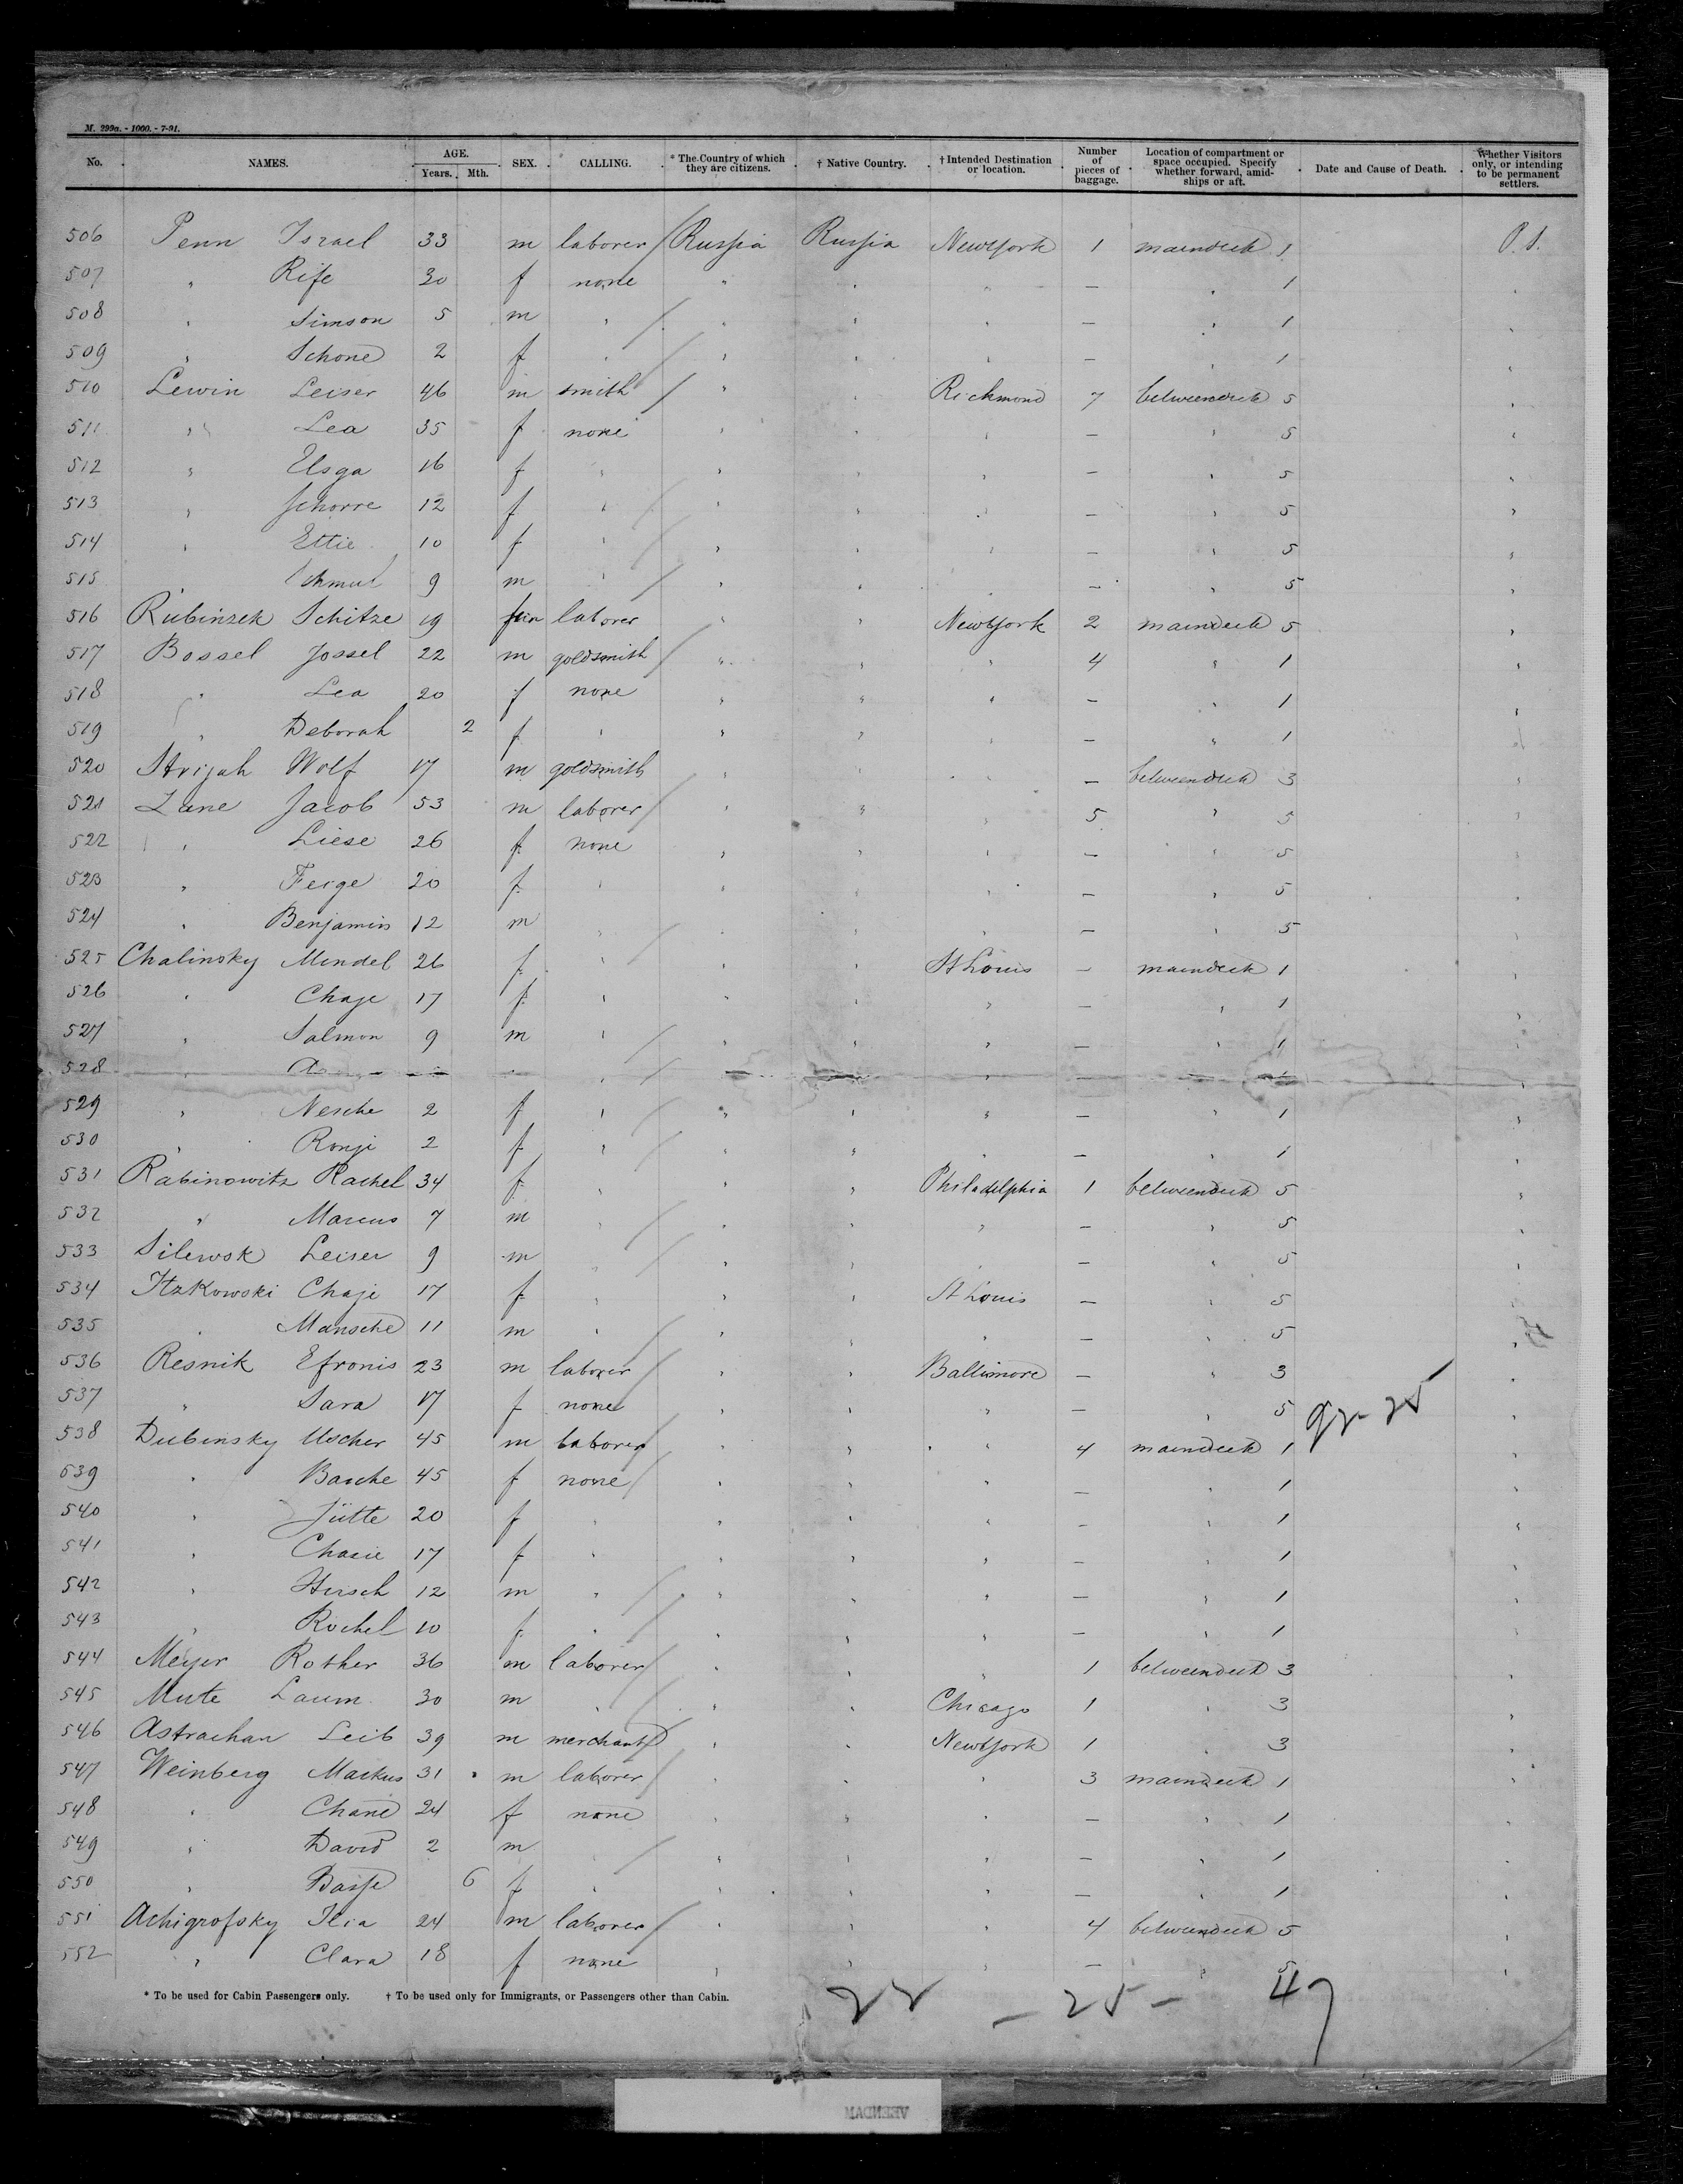 M. 299a. - 1000. - 7-91.
No. NAMES. AGE. Years. Mth. SEX. CALLING. * The Country of which they are citizens. † Native Country. † Intended Destination or location. Number of pieces of baggage. Location of compartment or space occupied. Specify whether forward, amidships or aft. Date and Cause of Death. Whether Visitors only, or intending to be permanent settlers.
506 Penn Israel 33 m laborer Russia Russia New York 1 maindeck 1 P.S.
507 " Rife 30 f none " " " — " 1 "
508 " Simson 5 m " " " " — " 1 "
509 " Schone 2 f " " " " — " 1 "
510 Lewin Leiser 46 m smith " " Richmond 7 betweendeck 5 "
511 " Lea 35 f none " " " — " 5 "
512 " Elsga 16 f " " " " — " 5 "
513 " Schorre 12 f " " " " — " 5 "
514 " Ettie 10 f " " " " — " 5 "
515 " Schmul 9 m " " " " — " 5 "
516 Rubinzek Schitze 19 m laborer " " New York 2 maindeck 5 "
517 Bossel Jossel 22 m goldsmith " " " 4 " 1 "
518 " Lea 20 f none " " " — " 1 "
519 " Deborah 2 f " " " " — " 1 "
520 Strijah Wolf 17 m goldsmith " " " — betweendeck 3 "
521 Lane Jacob 53 m laborer " " " 5 " 5 "
522 " Liese 26 f none " " " — " 5 "
523 " Feige 20 f " " " " — " 5 "
524 " Benjamin 12 m " " " " — " 5 "
525 Chalinsky Mendel 26 f " " " St Louis — maindeck 1 "
526 " Chaje 17 f " " " " — " 1 "
527 " Salmon 9 m " " " " — " 1 "
528 "
529 " Nesche 2 f " " " " — " 1 "
530 " Ronji 2 f " " " " — " 1 "
531 Rabinowitz Rachel 34 f " " " Philadelphia 1 betweendeck 5 "
532 " Marcus 7 m " " " " — " 5 "
533 Silewsk Leiser 9 m " " " " — " 5 "
534 Itzkowski Chaje 17 f " " " St Louis — " 5 "
535 " Mansche 11 m " " " " — " 5 "
536 Resnik Efronis 23 m laborer " " Baltimore — " 3 "
537 " Sara 17 f none " " " — " 5 "
538 Dubinsky Uscher 45 m laborer " " " 4 maindeck 1 "
539 " Basche 45 f none " " " — " 1 "
540 " Jütte 20 f " " " " — " 1 "
541 " Chasie 17 f " " " " — " 1 "
542 " Hirsch 12 m " " " " — " 1 "
543 " Rochel 10 f " " " " — " 1 "
544 Meyer Rother 36 m laborer " " " 1 betweendeck 3 "
545 Mute Laum 30 m " " " Chicago 1 " 3 "
546 Astrachan Leib 39 m merchant " " New York 1 " 3 "
547 Weinberg Markus 31 m laborer " " " 3 maindeck 1 "
548 " Chane 24 f none " " " — " 1 "
549 " David 2 m " " " " — " 1 "
550 " Basse 6 f " " " " — " 1 "
551 Achigrofsky Ilia 24 m laborer " " " 4 betweendeck 5 "
552 " Clara 18 f none " " " — " 5 "
* To be used for Cabin Passengers only. † To be used only for Immigrants, or Passengers other than Cabin.
22 — 25 — 47